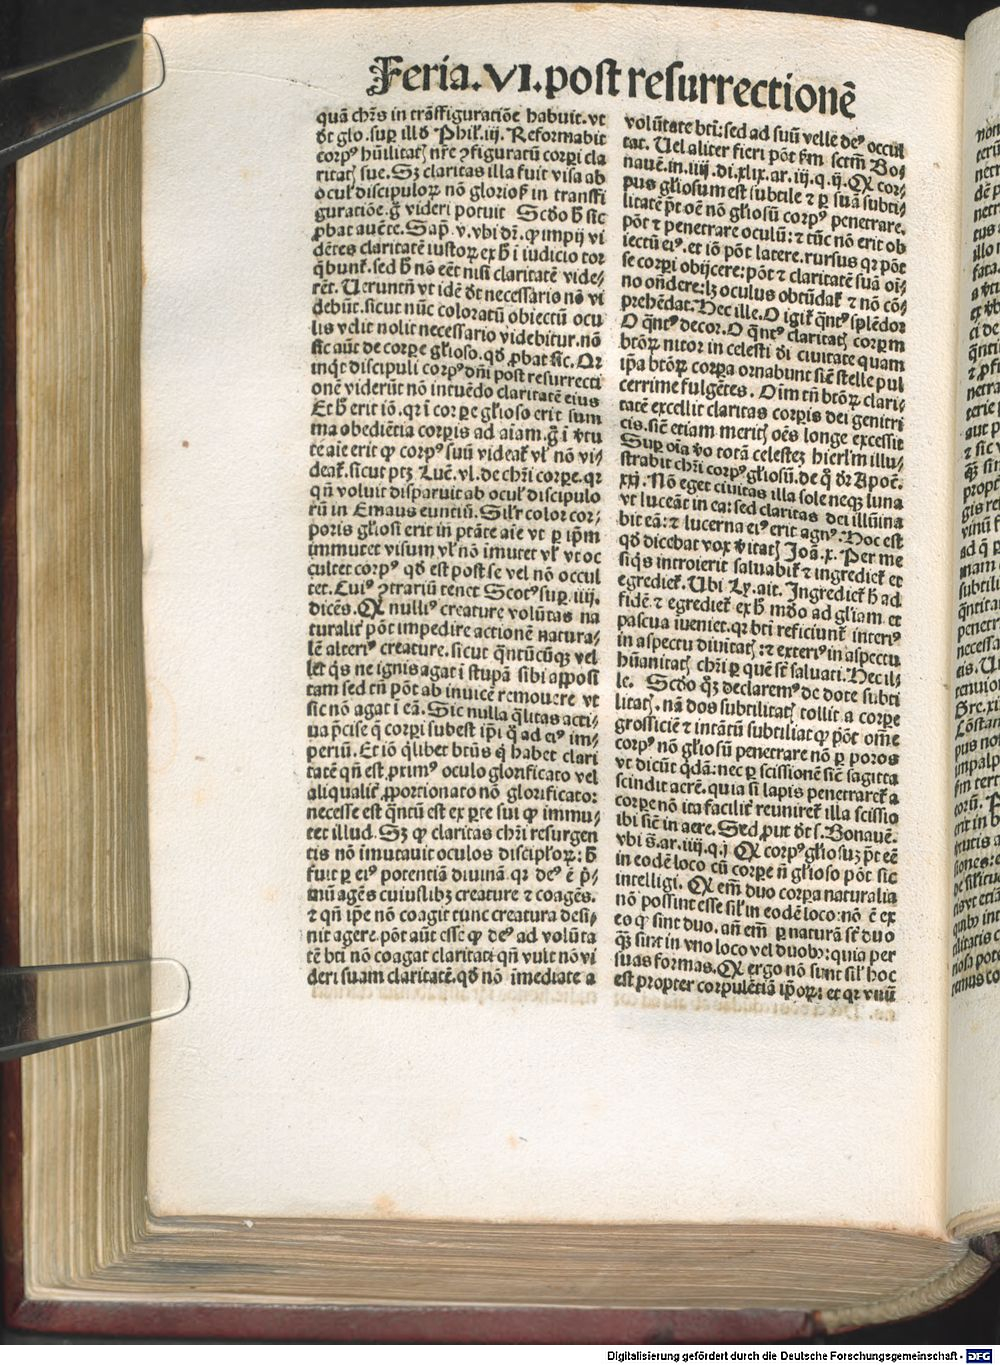 Feria.VI.post resurrectionē
quā chr̄s in trāsfiguratiōe habuit. vt
dt̄ glo. sup̱ illd̄ Phil̓. iij. Reformabit
corpꝰ hūilitatꝭ nr̄e ꝯfiguratū corpi cla
ritatꝭ sue. Sꝫ claritas illa fuit visa ab
ocul̓ discipuloꝝ nō glorios̓ in transfi
guratiōe. g̊ videri potuit Scd̄o h̄ sic
ꝓbat aucte. Sap̄. v. vbi dr̄. ꝙ impij vi
dētes claritatē iustoꝝ ex h̄ i iudicio tor
q̄bunt̓. sed h̄ nō eēt nisi claritatē vide⸗
rēt. Ueruntn̄ vt idē dt̄ necessario nō vi
debūt. sicut nūc coloratū obiectū ocu
lis velit nolit necessario videbitur. nō
sic aūt de corpe gl̓ioso. qd̄ ꝓbat sic. Qr
inq̓t discipuli corpꝰ dn̄i post resurrecti
onē viderūt nō intuēdo claritatē eius
Et h̄ erit iō. qr i corpe gl̓ioso erit sum
ma obediētia corpis ad aiam. g̊ i v̓tu
te aie erit ꝙ corpꝰ suū videat̓ vl̓ nō vi⸗
deat̓. sicut ptꝫ Luē. vl. de chr̄i corpe. qr
qn̄ voluit disparuit ab ocul̓ discipulo
rū in Emaus euntiū. Sil̓r color cor⸗
poris gl̓iosi erit in ptāte aīe vt ꝑ ip̄m
immutet visum vl̓ nō imutet vl̓ vt oc
cultet corpꝰ qd̄ est post se vel nō occul
tet. Cuiꝰ ꝯtrariū tenet Scotꝰ sup̱. iiij.
dicēs. Q̱ nulliꝰ creature volūtas na
turalit̓ pōt impedire actionē natura⸗
lē alteriꝰ creature. sicut q̄ntūcūqꝫ vel
let q̓s ne ignis agat i stupā sibi apposi
tam sed tn̄ pōt ab inuicē remouere vt
sic nō agat i eā. Sic nulla q̄litas acti⸗
ua p̄cise q̄ corpi subest ip̄i q̄ ad eiꝰ im⸗
periū. Et iō q̄libet btūs q̓ habet clari
tatē qn̄ est p̄rimꝰ oculo glorificato vel
ali qualit̓ ꝓportionato nō glorificato:
necesse est q̄ntū est ex pte sui ꝙ immu⸗
tet illud. Sꝫ ꝙ claritas chr̄i resurgen
tis nō imutauit oculos discipl̓oꝝ: h̄
fuit ꝑ eiꝰ potentiā diuinā. qr deꝰ ē p̓⸗
mū agēs cuiuslibꝫ creature ⁊ coagēs.
⁊ qn̄ ip̄e nō coagit tunc creatura desi⸗
nit agere. pōt aūt esse ꝙ deꝰ ad volūta
tē bti nō coagat claritati qn̄ vult nō vi
deri suam claritatē. qd̄ nō īmediate a
volūtate bti: sed ad suū velle deꝰ occul
tat. Uel aliter fieri pōt s̄m sctm̄ Bo⸗
nauē. in. iiij. di. xlix. ar. iij. q. ij. Q̱ cor⸗
pus gl̓iosum est subtile ⁊ ꝑ suā subti⸗
litatē pt̄ oē nō gl̓iosū corpꝰ penetrare.
pōt ⁊ penetrare oculū: ⁊ tūc nō erit ob
iectū eiꝰ. et iō pōt latere. rursus qr pōt
se corpi obijcere: pōt ⁊ claritatē suā oī⸗
no oñdere: lꝫ oculus obtūdat̓ ⁊ nō cō⸗
prehēdat. Hec ille. O igit̓ q̄ntꝰ splēdor
O q̄ntꝰ decor. O q̄ntꝰ claritatꝭ corpm
btōꝝ nitor in celesti di ciuitate quam
ip̄a btōꝝ corpa ornabunt siē stelle pul
cerrime fulgētes. Oim tn̄ btōꝝ clari⸗
tatē excellit claritas corpis dei genitri
cis. siē etiam meritꝭ oēs longe excessit
Sup̱ oīa v̓o totā celestez hierl̓m illu⸗
strabit chr̄i corpꝰ gl̓iosū. de q̊ dr̄ Apoē.
xxj. Nō eget ciuitas illa sole neqꝫ luna
vt luceāt in ea: sed claritas dei illūina
bit eā: ⁊ lucerna eiꝰ erit agnꝰ. Hoc est
qd̄ dicebat vox v̓itatꝭ Joā. x. Per me
siq̓s introierit saluabit̓ ⁊ ingrediet̓ et
egrediet̓. Ubi Ly. ait. Ingrediet̓ h̄ ad
fidē ⁊ egrediet̓ ex h̄ mūdo ad gl̓iam et
pascua iueniet. qr bti reficiunt̓ interiꝰ
in aspectu diuitatꝭ: ⁊ exteriꝰ in aspectu
hūanitatꝭ chr̄i ꝑ quē st̄ saluati. Hec il⸗
le. Scd̄o q̄ꝫ declaremꝰ de dote subti
litatꝭ. nā dos subtilitatꝭ tollit a corpe
grossiciē ⁊ intātū subtiliat ꝙ pōt om̄e
corpꝰ nō gl̓iosū penetrare nō ꝑ poros
vt dicūt q̓dā: nec ꝑ scissionē siē sagitta
scindit aerē. quia si lapis penetraret̓ a
corpe nō ita facilit̓ reuniret̓ illa scissio
ibi siē in aere. Sed ꝓut dt̄ s. Bonauē.
vbi s̄. ar. iiij. q. j Q̱ corpꝰ gl̓iosuꝫ pt̄ eē
in eodē loco cū corpe n̄ gl̓ioso pōt sic
intelligi. Q̱ em̄ duo corpa naturalia
nō possint esse sil̓ in eodē loco: nō ē ex
eo ꝙ sint duo. añ em̄ ꝑ naturā st̄ duo
q̄ꝫ sint in vno loco vel duobꝰ: quia per
suas formas. Q̱ ergo nō sunt sil̓ hoc
est propter corpulētiā ip̄oꝝ: et qr vnū
Digitalisierung gefördert durch die Deutsche Forschungsgemeinschaft - DFG